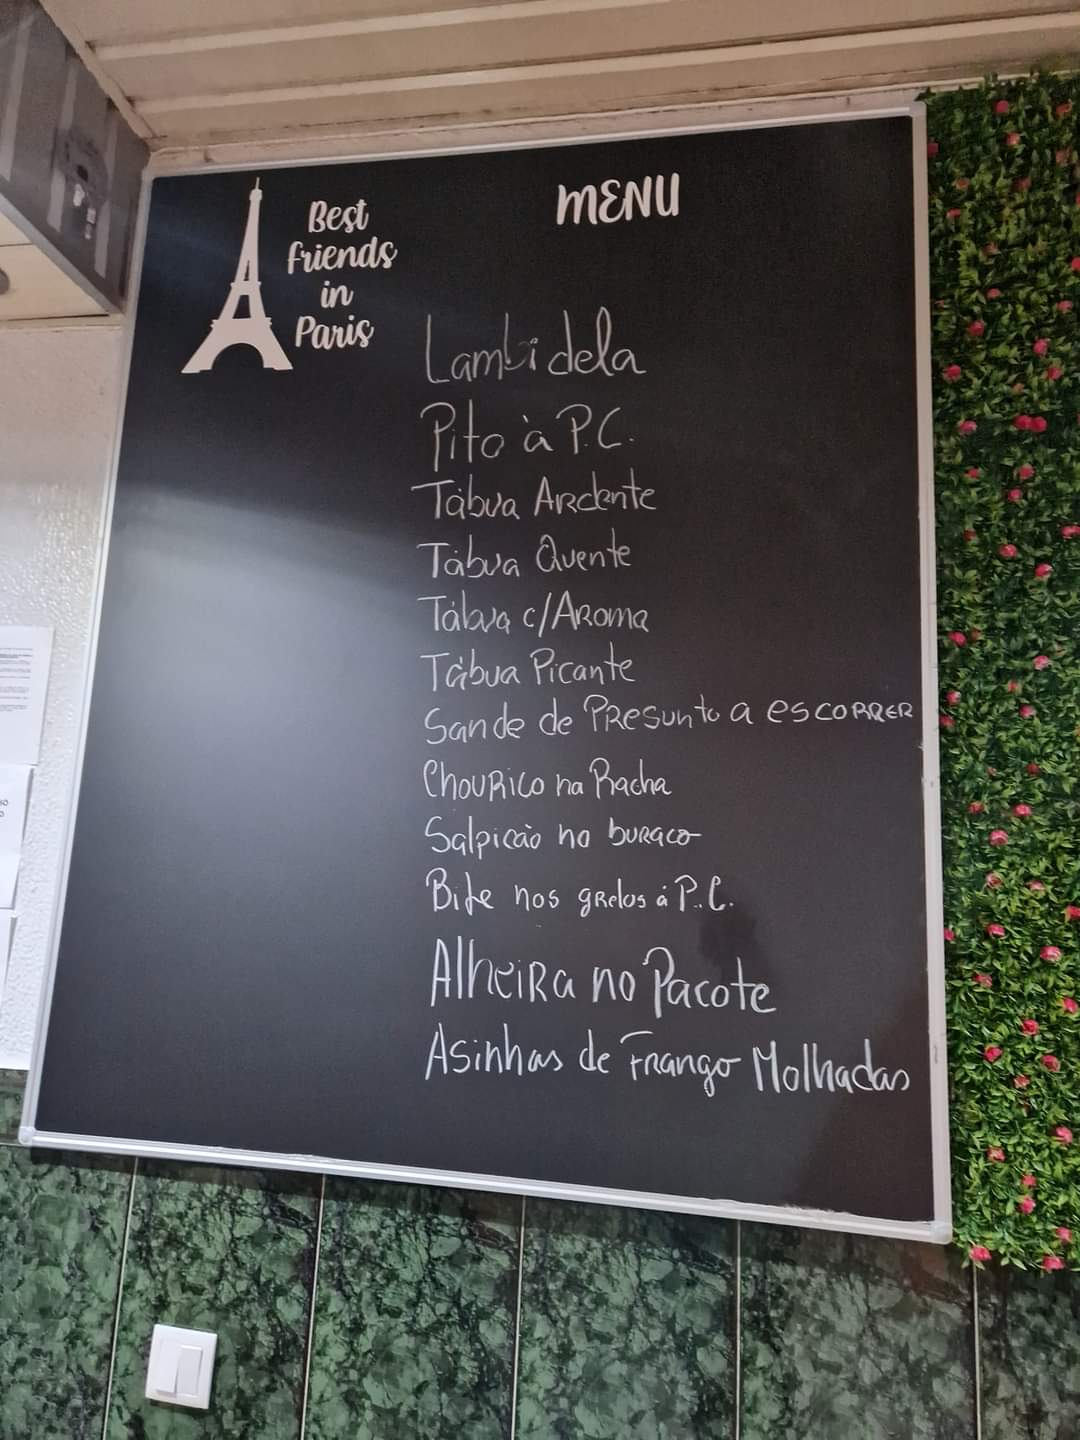 Best
friends
in
Paris
MENU
Lambidela
Pito à P.C.
Tábua Ardente
Tábua Quente
Tábua c/Aroma
Tábua Picante
Sande de Presunto a escorrer
Chouriço na Racha
Salpicão no buraco
Bife nos grelos á P.C.
Alheira no Pacote
Asinhas de Frango Molhadas